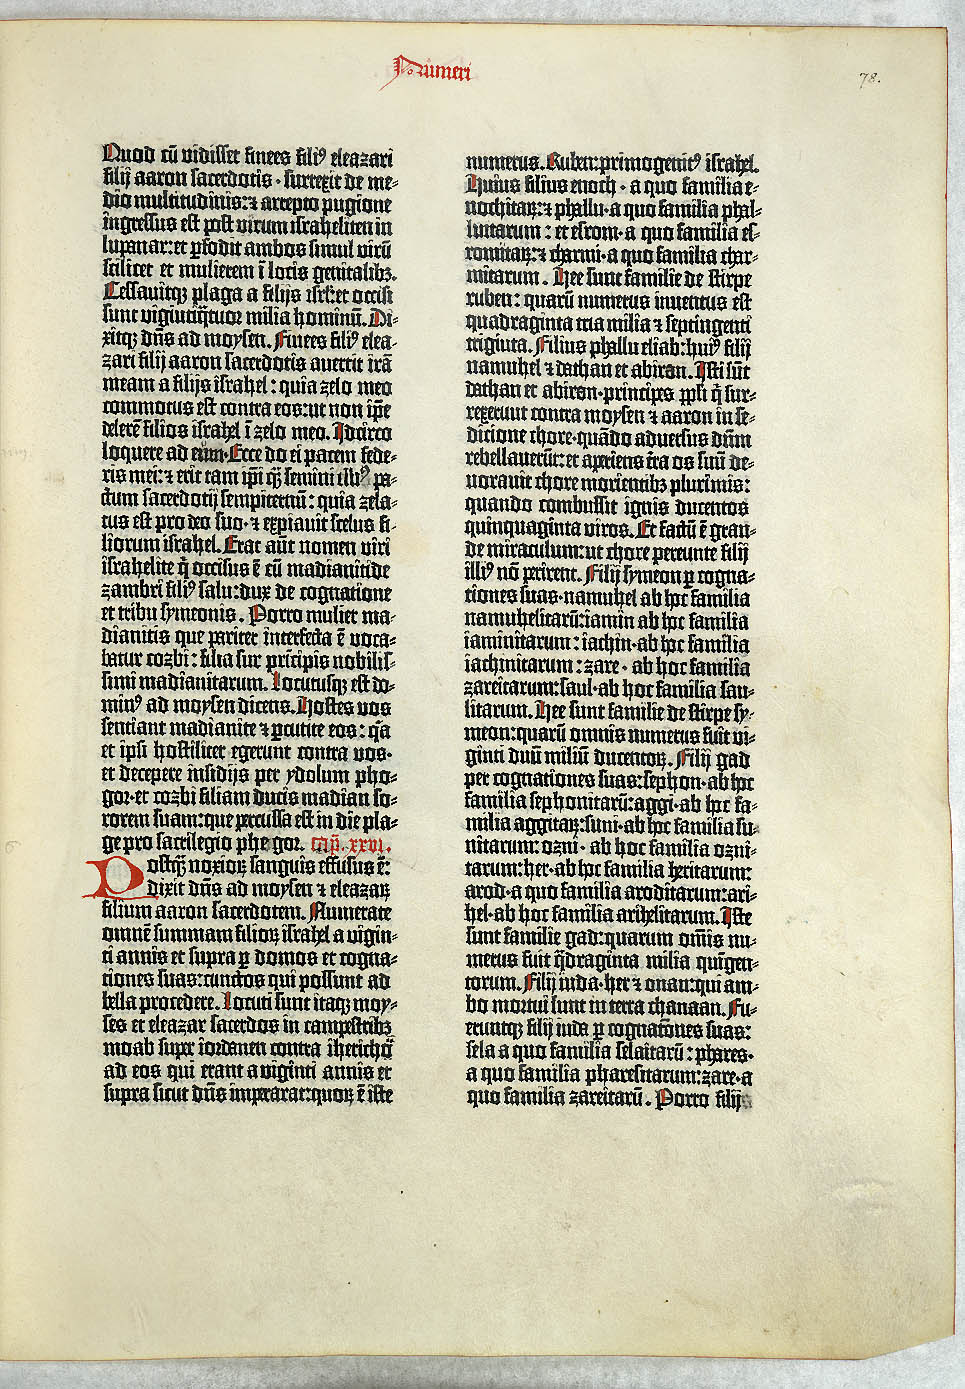 Numeri
78.
Quod cū vidisset finees filiꝰ eleazari
filij aaron sacerdotis · surrexit de me-
dio multitudinis: ⁊ arrepto pugione
ingressus est post virum israheliten in
lupanar: et ꝑfodit ambos simul virū
scilicet et mulierem ī locis genitalibꝫ.
Cessavitqꝫ plaga a filijs isrl̄: et occisi
sunt vigintiq̄tuor milia hominū. Di-
xitqꝫ dn̄s ad moysen. Finees filiꝰ elea-
zari filij aaron sacerdotis avertit irā
meam a filijs israhel : quia zelo meo
commotus est contra eos: ut non ip̄e
delerē filios israhel ī zelo meo. Idcirco
loquere ad eum. Ecce do ei pacem fede-
ris mei: ⁊ erit tam ip̄i q̄ꝫ semini illiꝰ pa-
ctum sacerdotij sempiternū: quia zela-
tus est pro deo suo · ⁊ expiavit scelus fi-
liorum israhel. Erat aūt nomen viri
israhelite q̄ occisus ē cū madianitide
zambri filiꝰ salu: dux de cognatione
et tribu symeonis. Porro mulier ma-
dianitis que pariter interfecta ē voca-
batur cozbi: filia sur prīcipis nobilis-
simi madianitarum. Locutusqꝫ est do-
minꝰ ad moysen dicens. Hostes vos
sentiant madianite ⁊ ꝑcutite eos: q̄a
et ipsi hostiliter egerunt contra vos·
et decepere insidijs per ydolum pho-
gor· et cozbi filiam ducis madian so-
rorem suam: que percussa est in die pla-
ge pro sacrilegio phegor. Cap̄. xxvi.
Postq̄ꝫ noxioꝝ sanguis effusus ē:
dixit dn̄s ad moysen ⁊ eleazaꝝ
filium aaron sacerdotem. Numerate
omnē summam filioꝝ israhel a vigin-
ti annis et supra ꝑ domos et cogna-
tiones suas: cunctos qui possunt ad
bella procedere. Locuti sunt itaqꝫ moy-
ses et eleazar sacerdos in campestribꝫ
moab super iordanen contra iherichō
ad eos qui erant a viginti annis et
supra sicut dn̄s imperarat: quoꝝ ē iste
numerus. Ruben: primogenitꝰ israhel.
Huius filius enoch · a quo familia e-
nochitaꝝ: ⁊ phallu · a quo familia phal-
luitarum : et esrom · a quo familia es-
romitaꝝ: ⁊ charmi · a quo familia char-
mitarum. Hee sunt familie de stirpe
ruben: quarū numerus inventus est
quadraginta tria milia ⁊ septingenti
triginta. Filius phallu eliab: huiꝰ filij
namuhel ⁊ dathan et abiron. Isti sūt
dathan et abiron · principes ppl̄i q̄ sur-
rexerunt contra moysen ⁊ aaron in se-
dicione chore · quādo adversus dn̄m
rebellaverūt: et aperiens t̄ra os suū de-
voravit chore morientibꝫ plurimis:
quando combussit ignis ducentos
quinquaginta viros. Et factū ē gran-
de miraculum: ut chore pereunte filij
illiꝰ nō perirent. Filij symeon ꝑ cogna-
tiones suas · namuhel ab hoc familia
namuhelitarū: iamin ab hoc familia
iaminitarum : iachin · ab hoc familia
iachinitarum : zare · ab hoc familia
zareitarum: saul · ab hoc familia sau-
litarum. Hee sunt familie de stirpe sy-
meon: quarū omnis numerus fuit vi-
ginti duū miliū ducentoꝝ. Filij gad
per cognationes suas: sephon · ab hoc
familia sephonitarū: aggi · ab hoc fa-
milia aggitaꝝ: suni · ab hoc familia su-
nitarum: ozni · ab hoc familia ozni-
tarum: her · ab hoc familia heritarum:
arod · a quo familia aroditarum: ari-
hel · ab hoc familia arihelitarum. Iste
sunt familie gad: quarum om̄is nu-
merus fuit q̄draginta milia quīgen-
torum. Filij iuda · her ⁊ onan: qui am-
bo mortui sunt in terra chanaan. Fu-
eruntqꝫ filij iuda ꝑ cognatōnes suas:
sela a quo familia selaitarū: phares·
a quo familia pharesitarum: zare · a
quo familia zareitarū. Porro filij